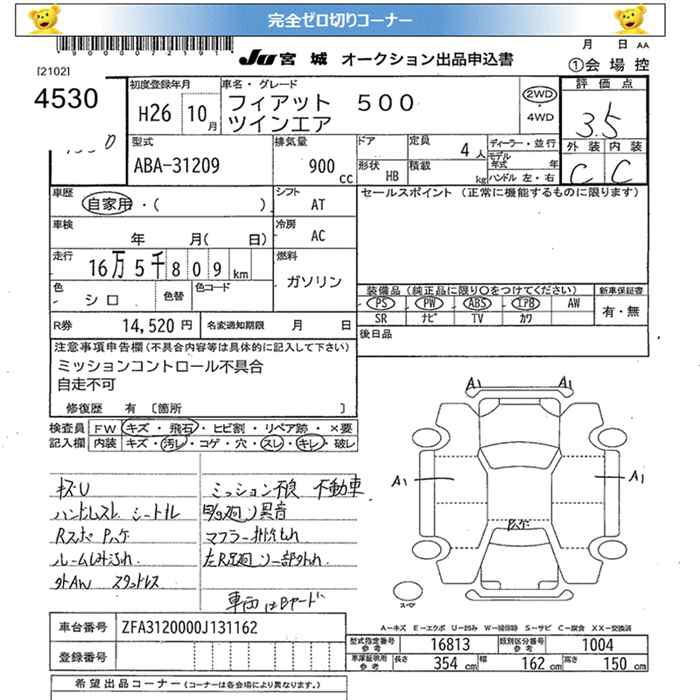 完全ゼロ切りコーナー
[2102]
JU 宮城 オークション出品申込書
月 日 AA
①会場控
4530
初度登録年月
H26 10月
車名・グレード
フィアット 500
ツインエア
2WD
・
4WD
評価点
3.5
外装 内装
C C
型式
ABA-31209
排気量
900 cc
ドア
形状 HB
定員 4人
積載 kg
ディーラー・並行
モデル年式 年
ハンドル 左・右
車歴
自家用・( )
シフト AT
セールスポイント (正常に機能するものに限ります)
車検
年 月( 日)
冷房 AC
走行
16万5千809km
燃料
ガソリン
色
シロ
色替
色コード
装備品 (純正品に限り○をつけてください)
新車保証書
PS PW ABS エアB AW
SR ナビ TV カワ
有・無
R券 14,520円
名変通知期限 月 日
後日品
注意事項申告欄(不具合内容等は具体的に記入して下さい)
ミッションコントロール不具合
自走不可
修復歴 有 〔箇所 〕
検査員 FW キズ・飛石・ヒビ割・リペア跡・×要
記入欄 内装 キズ・汚レ・コゲ・穴・スレ・キレ・破レ
キズU
ミッション不良 不動車
Rスポ
ルームしみ汚れ
外AW スタッドレス
A1 A1
A1 A1
スペア
A―キズ E―エクボ U―凹み W―補修跡 S―サビ C―腐食 XX―交換済
車台番号 ZFA3120000J131162
登録番号
型式指定番号 参考 16813
類別区分番号 参考 1004
車庫証明用 参考 長さ 354 cm 幅 162 cm 高さ 150 cm
希望出品コーナー (コーナーは各会場により異なります。)